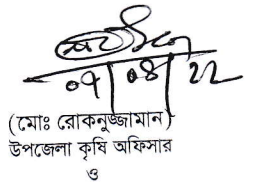 ০৭/০৪/22
(মোঃ রোকনুজ্জামান)
উপজেলা কৃষি অফিসার
ও